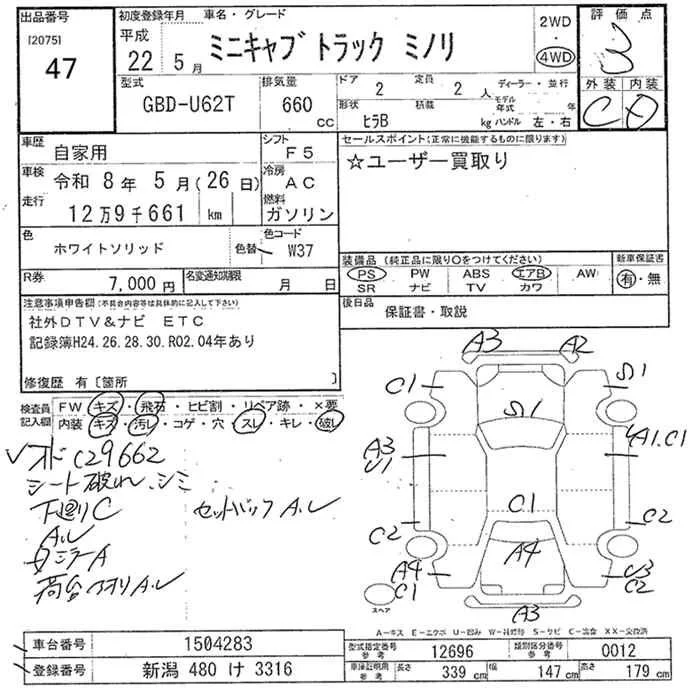 出品番号 初度登録年月 車名・グレード 2WD 評価点
[2075] 平成 ミニキャブ トラック ミノリ 4WD 3
47 22 5月 外装 内装
型式 排気量 ドア 2 定員 2人 ディーラー・並行 C D
GBD-U62T 660cc 形状 ヒラB 積載 kg モデル年式 年 ハンドル 左・右
車歴 自家用 シフト F5 セールスポイント(正常に機能するものに限ります)
車検 令和 8年 5月(26日) 冷房 AC ☆ユーザー買取り
走行 12万9千661 km 燃料 ガソリン
色 ホワイトソリッド 色替 色コード W37
装備品 (純正品に限り○をつけてください) 新車保証書
PS PW ABS エアB AW 有・無
SR ナビ TV カワ
R券 7,000円 名変通知期限 月 日
後日品 保証書・取説
注意事項申告欄(不具合内容等は具体的に記入して下さい)
社外DTV&ナビ ETC
記録簿H24.26.28.30.R02.04年あり
修復歴 有[箇所 ]
検査員記入欄 FW キズ・飛石・ヒビ割・リペア跡・×要
内装 キズ・汚レ・コゲ・穴・スレ・キレ・破レ
シート破れ、シミ
下廻りC セットバック A.U
A.U
ミラーA
荷台アオリ A.U
A3 A2
C1 S1
S1
A3 U1 A1.C1
C1
C2 C2
A4
A4 C1 U3 C2
スペア A3
A-キズ E-エクボ U-凹み W-補修跡 S-サビ C-腐食 XX-交換済
車台番号 1504283 型式指定番号 参考 12696 類別区分番号 参考 0012
登録番号 新潟 480 け 3316 車庫証明用 参考 長さ 339cm 幅 147cm 高さ 179cm